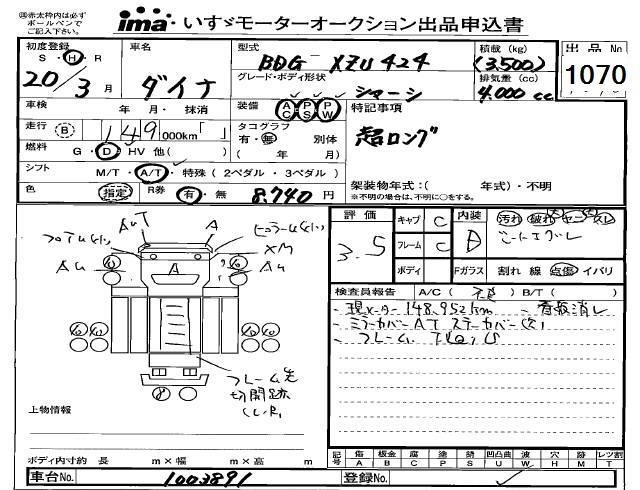 ㊟赤太枠内は必ず
ボールペンで
ご記入下さい。
ima・いすゞモーターオークション出品申込書
初度登録 車名 型式 積載 (kg) 出品No
S・H・R BDG XZU424 (3,500) 1070
20/3月 ダイナ グレード・ボディ形状 排気量 (cc)
シャーシ 4,000 cc
車検 年 月・ 抹消 装備 AC PS PW 特記事項
走行 B 149 000km「 」 タコグラフ 超ロング
有・無 別体
燃料 G・D・HV 他( ) ( 年 月)
シフト M/T・A/T・特殊 (2ペダル・3ペダル)
架装物年式:( 年式)・不明
色 指定 R券 有・無 8,740円 ※不明の場合は、不明に○をする。
評価 キャブ C 内装 汚れ 破れ ヤニ スレ
3.5 フレーム C D
ボディ Fガラス 割れ 線 点傷 イバリ
AUT A
XM
AU AU
A
検査員報告 A/C( ) B/T( )
現メーター148,952km 看板消し
ミラーカバーAT ステーカバー欠
フレーム
フレーム先
切開跡
(L.R)
8
上物情報
記号 傷 板金 腐 塗 錆 凹凸曲 波 穴 跡 レツ割
A B C P S U W H M T
ボディ内寸約 長 m×幅 m×高 m
車台No. 1003891 登録No.